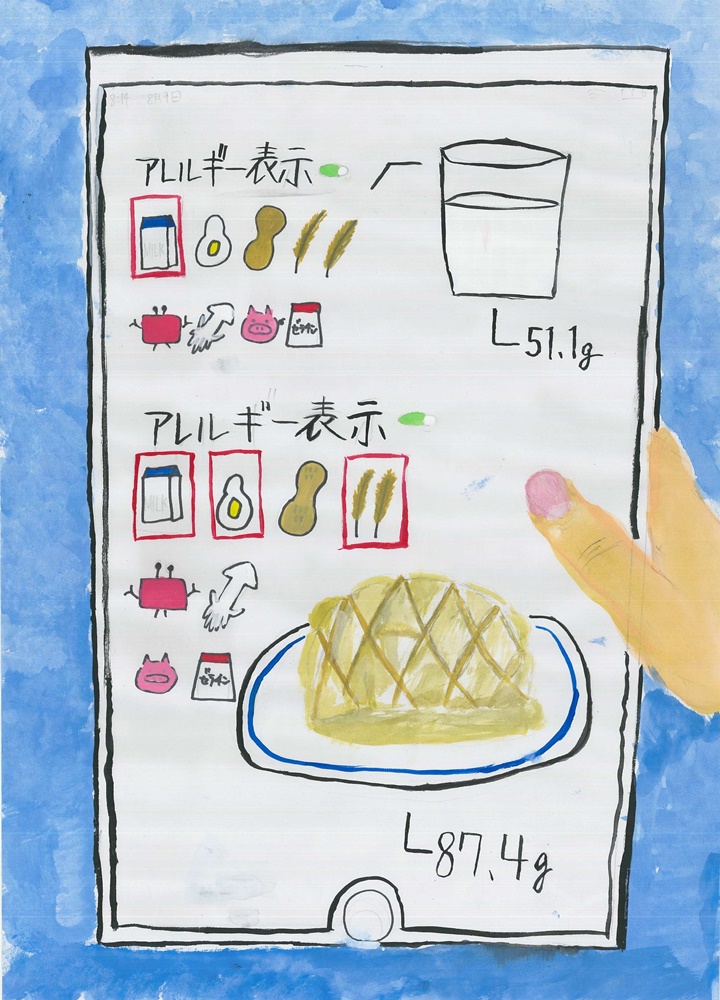 アレルギー表示
MILK
ゼラチン
51.1g
アレルギー表示
MILK
ゼラチン
87.4g